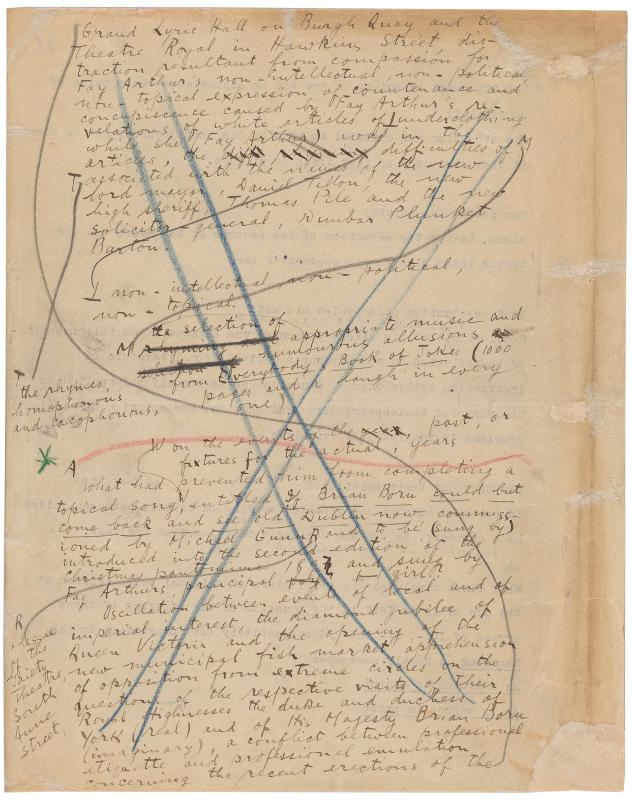 Grand Lyric Hall on Burgh Quay and the
Theatre Royal in Hawkins Street, dis-
traction resultant from compassion for
Fay Arthur's non-intellectual, non-political
non topical expression of countenance and
concupiscence caused by Fay Arthur's re-
velations of white articles of underclothing
while she (Fay Arthur) was in the
articles, the difficulties of M
T associated with the names of the new
lord mayor, Daniel Tallon, the new
high sheriff, Thomas Pile and the new
solicitor-general, Dunbar Plunket
Barton.
I non-intellectual non-political,
non-topical.
the selection of
M appropriate music and
humourous allusions
from Everybody's Book of Jokes (1000
pages and a laugh in every
one)
T
the rhymes,
homophonous
and cacophonous,
W on the events of the past, or
fixtures for the actual, years
A
What had prevented him from completing a
topical song, entitled If Brian Boru could but
come back and see old Dublin now commiss-
ioned by Michael Gunn R and to be (sung by)
introduced into the second edition of the
Christmas pantomime, and sung by
Fay Arthurs, principal girl?
Oscillation between events of local and of
imperial interest, the diamond jubilee of
Queen Victoria and the opening of the
new municipal fish market, apprehension
of opposition from extreme circles on the
questions of the respective visits of Their
Royal Highnesses the duke and duchess of
York (real) and of His Majesty Brian Boru
(imaginary), a conflict between professional
etiquette and professional emulation
concerning the recent erections of the
R
, lessee
of the
Gaiety
Theatre,
South
Anne
street,